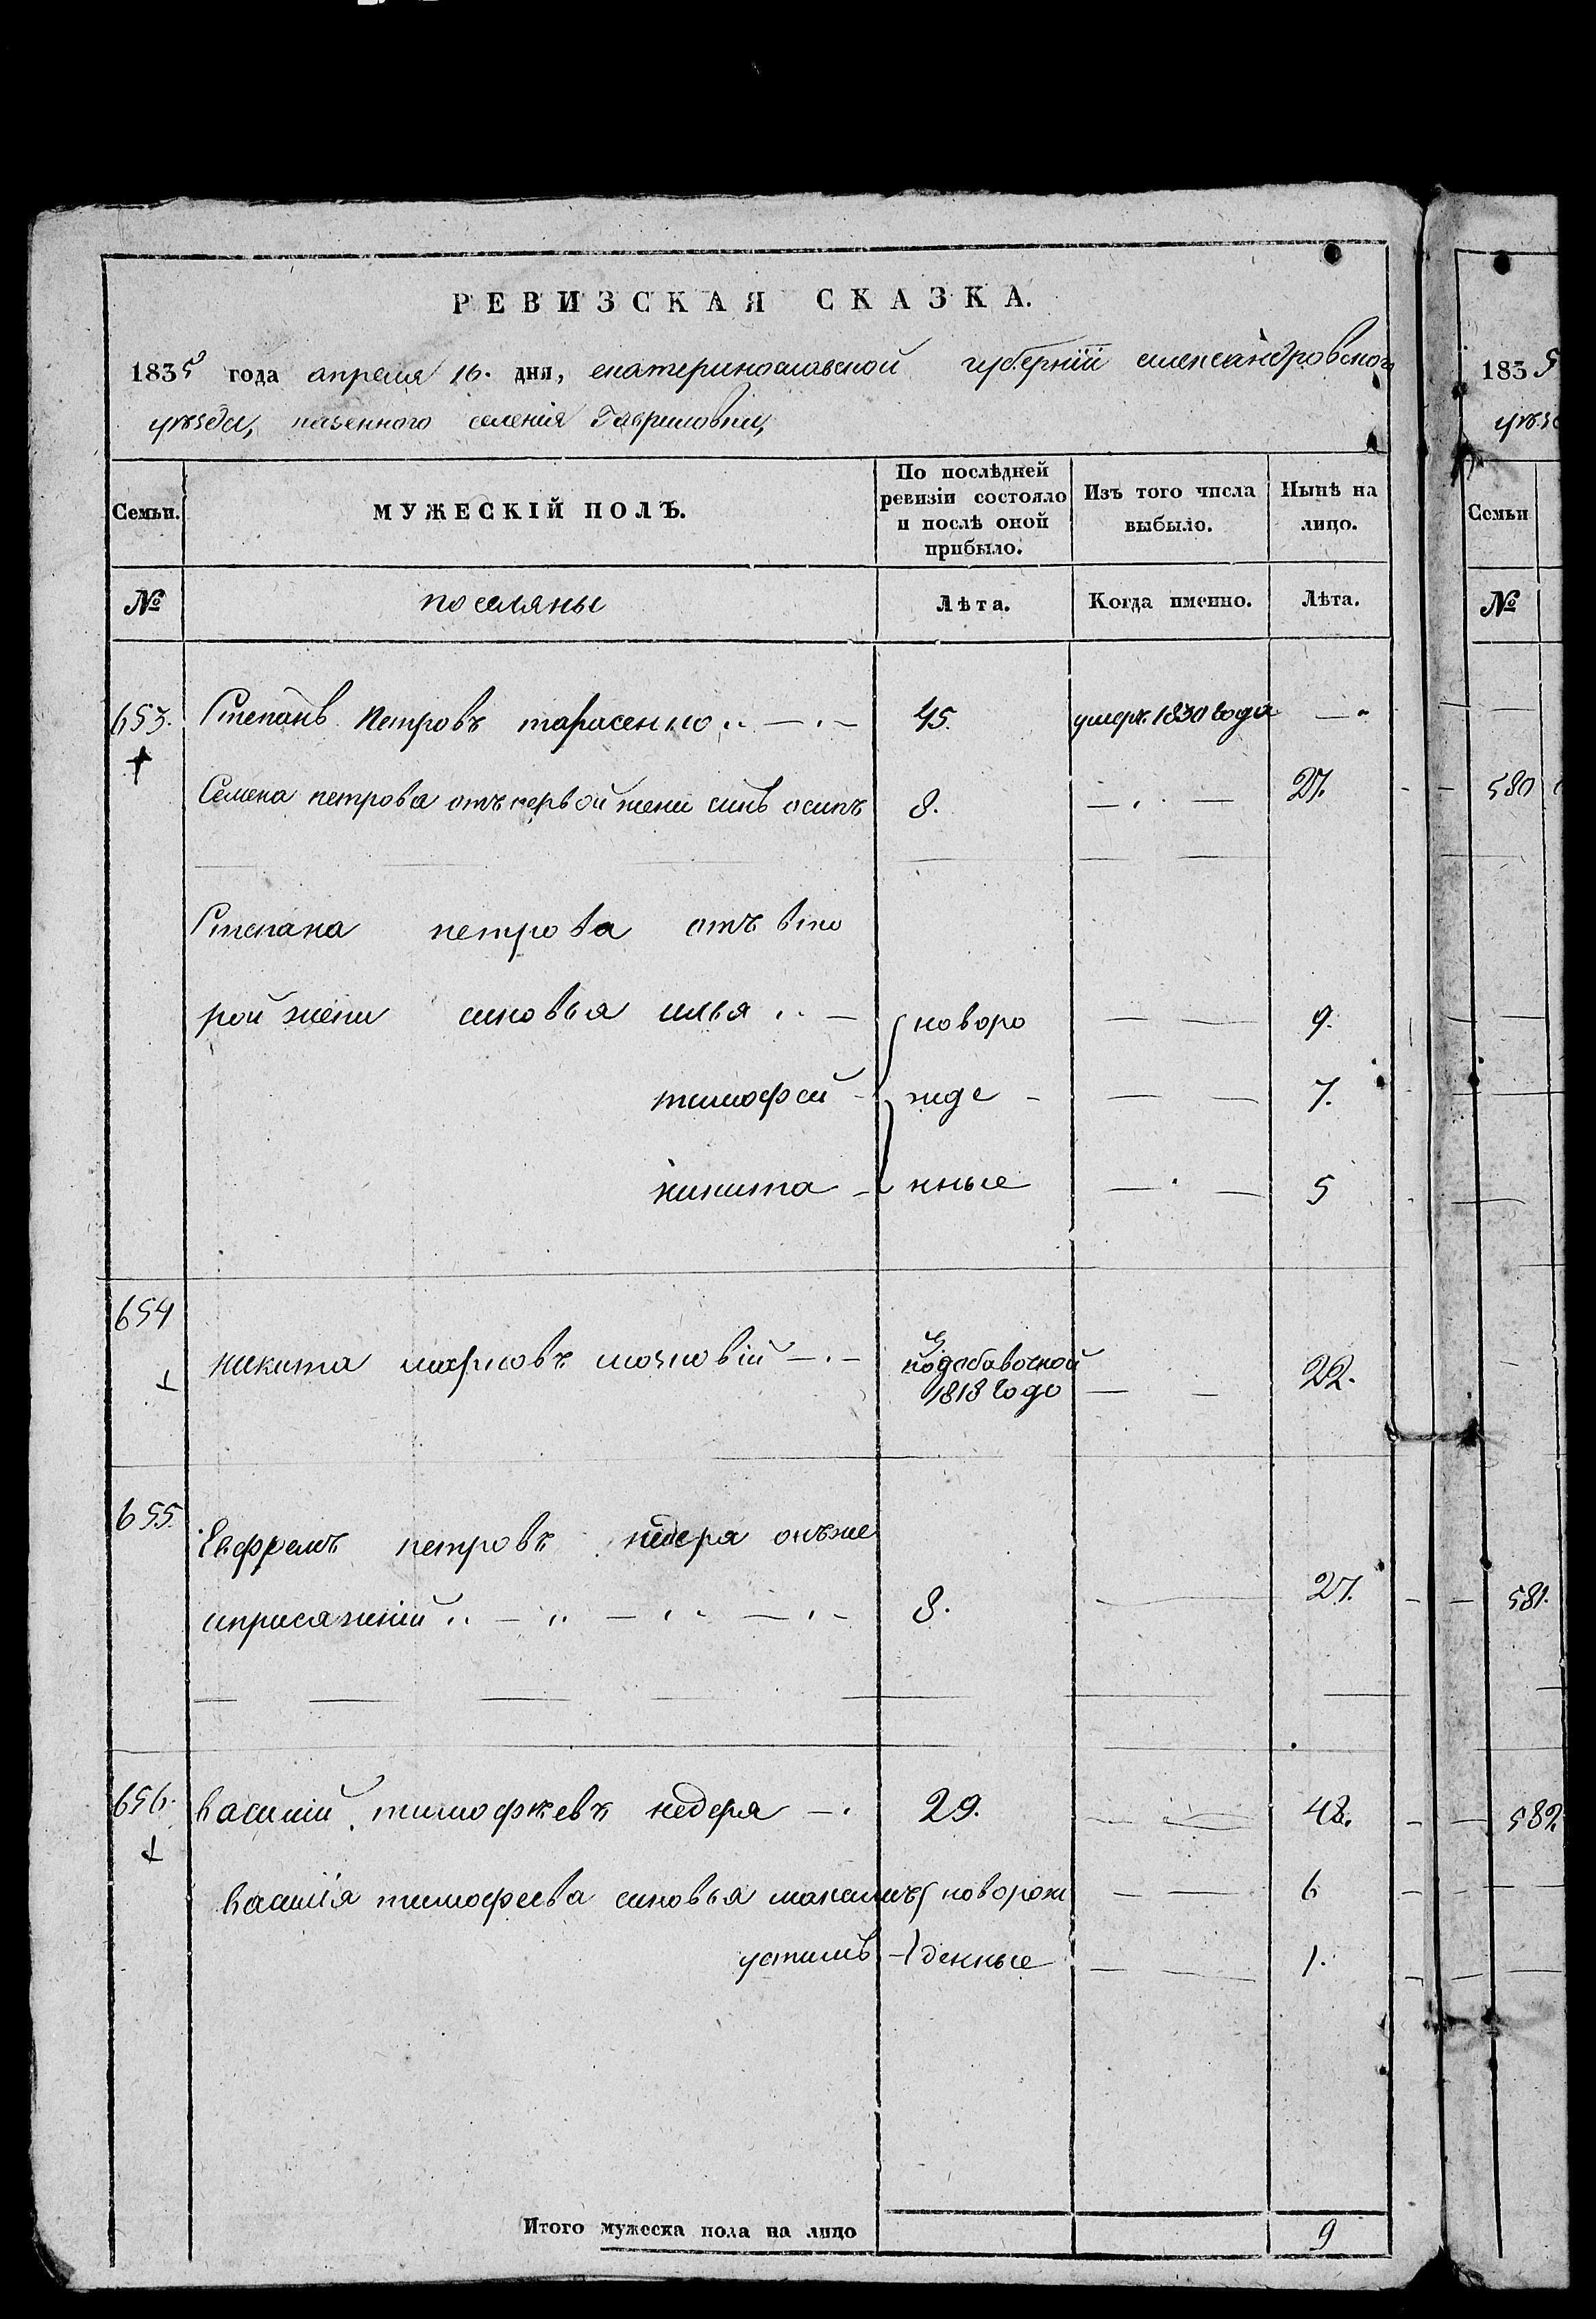 РЕВИЗСКАЯ СКАЗКА.
1835 года апреля 16. дня, екатеринославской губернїи александровского
уѣзда, казенного селенія Гавриловки,
Семьи.
МУЖЕСКІЙ ПОЛЪ.
По послѣдней ревизіи состояло и послѣ оной прибыло.
Изъ того числа выбыло.
Нынѣ на лицо.
№ поселяны Лѣта. Когда именно. Лѣта.
653. Степанъ Петровъ тарасенко 45. умеръ 1830 года
Семена петрова отъ первой жени синъ осипъ 8. 27.
Степана петрова отъ вто
рой жени синовья илья новоро 9.
тимофей жде 7.
никита нные 5
654
никита марковъ 3 по добавочной 1818 годо 22.
655.
Евфремъ петровъ недеря онъже
8. 27.
656. василий тимофѣевъ недеря 29. 48.
василїя тимофеева синовья максимъ новорож 6
устимъ денные 1.
Итого мужеска пола на лицо 9
1835
уѣз
Семьи
№
580
581.
582.